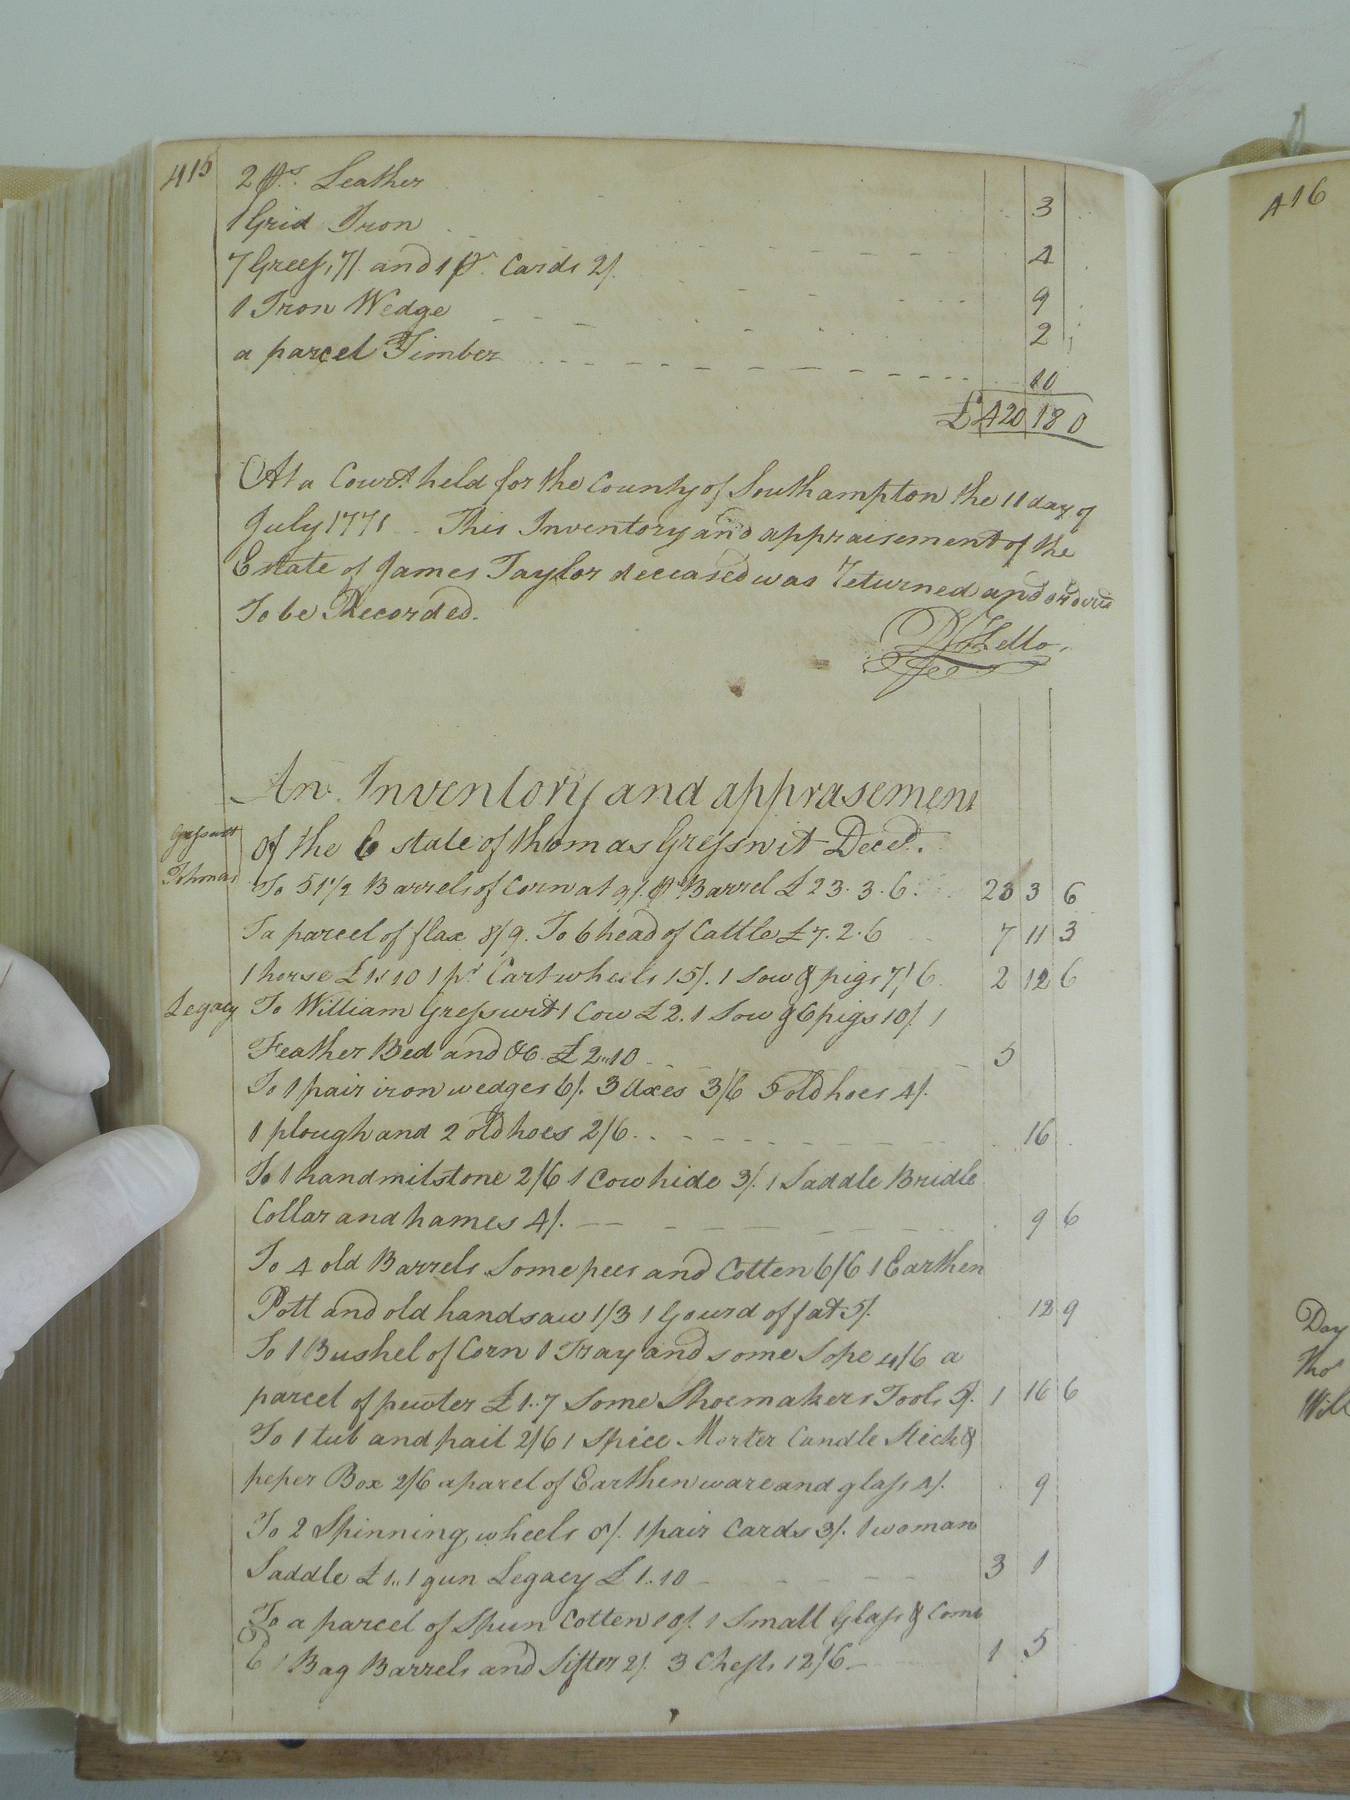 415
2 ps. Leather 3
1 Grid Iron 4
7 Geese, 7/. and 1 pr. Cards 2/. 9
1 Iron Wedge 2
a parcel Timber 10
£420 18 0
At a Court held for the County of Southampton the 11 day of
July 1771 This Inventory and appraisement of the
Estate of James Taylor deceased was returned and ordered
To be Recorded.
An Inventory and apprasement
Gresswit
Thomas
of the Estate of thomas Gresswit Deced.
To 51 1/2 Barrels of Corn at 9/. pr Barrel £23.3.6. 23 3 6
Ta parcel of flax 8/9. To 6 head of Cattle £7.2.6 7 11 3
1 horse £1:10 1 pr Cart wheels 15/. 1 Sow & pigs 7/6. 2 12 6
Legacy To William Gresswit 1 Cow £2. 1 Sow & 6 pigs 10/. 1
Feather Bed and &C. £2..10 5
To 1 pair iron wedges 6/. 3 Axes 3/6 5 old hoes 4/.
1 plough and 2 old hoes 2/6 16
To 1 hand milstone 2/6 1 Cow hide 3/. 1 Saddle Bridle
Collar and hames 4/. 9 6
To 4 old Barrels Some pees and Cotten 6/6 1 Earthen
Pott and old handsaw 1/3 1 Gourd of fat 5/. 12 9
To 1 Bushel of Corn 1 Tray and some Sope 4/6 a
parcel of pewter £1..7 Some Shoemakers Tools 5/. 1 16 6
To 1 tub and pail 2/6 1 Spice Morter Candle Stick &
peper Box 2/6 a parcel of Earthen ware and glass 4/. 9
To 2 Spinning wheels 8/. 1 pair Cards 3/. 1 woman
Saddle £1.. 1 gun Legacy £1..10 3 1
To a parcel of Spun Cotten 10/. 1 Small Glass & Comb
1 Bag Barrels and Sifter 2/. 3 Chests 12/6 1 5
416
Day
Tho
Will